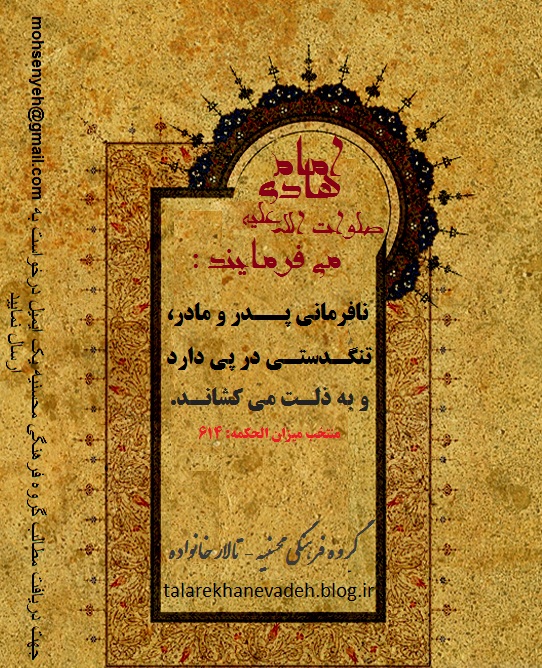 امام
هادی
صلوات الله علیه
می فرمایند :
نافرمانی پــــدر و مادر،
تنگــدستــی در پی دارد
و به ذلــت می کشانــد.
منتخب میزان الحکمه: ۶۱۴
گروه فرهنگی محسنیه - تالار خانواده
talarekhanevadeh.blog.ir
جهت دریافت مطالب گروه فرهنگی محسنیه یک ایمیل درخواست به mohsenyeh@gmail.com
ارسال نمایید